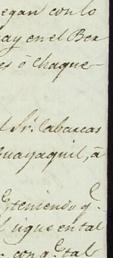 egan con lo
ay en el Ber
es ô chaque-
l Sr. Cabarcas
Guayaquil, â
Exteniendo q.e
l sigue en tal
con q.e tal